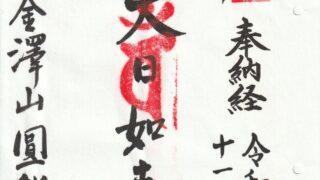 奉納経
令和
十一
大日如来
金澤山圓